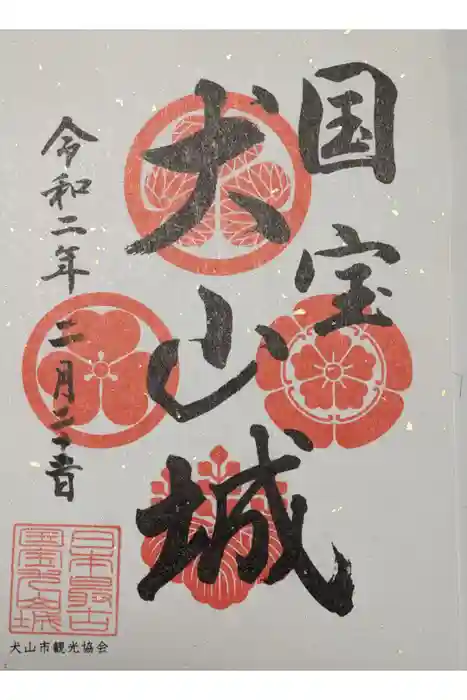 国宝
犬山城
令和二年二月
日本最古
国宝犬山城
犬山市観光協会